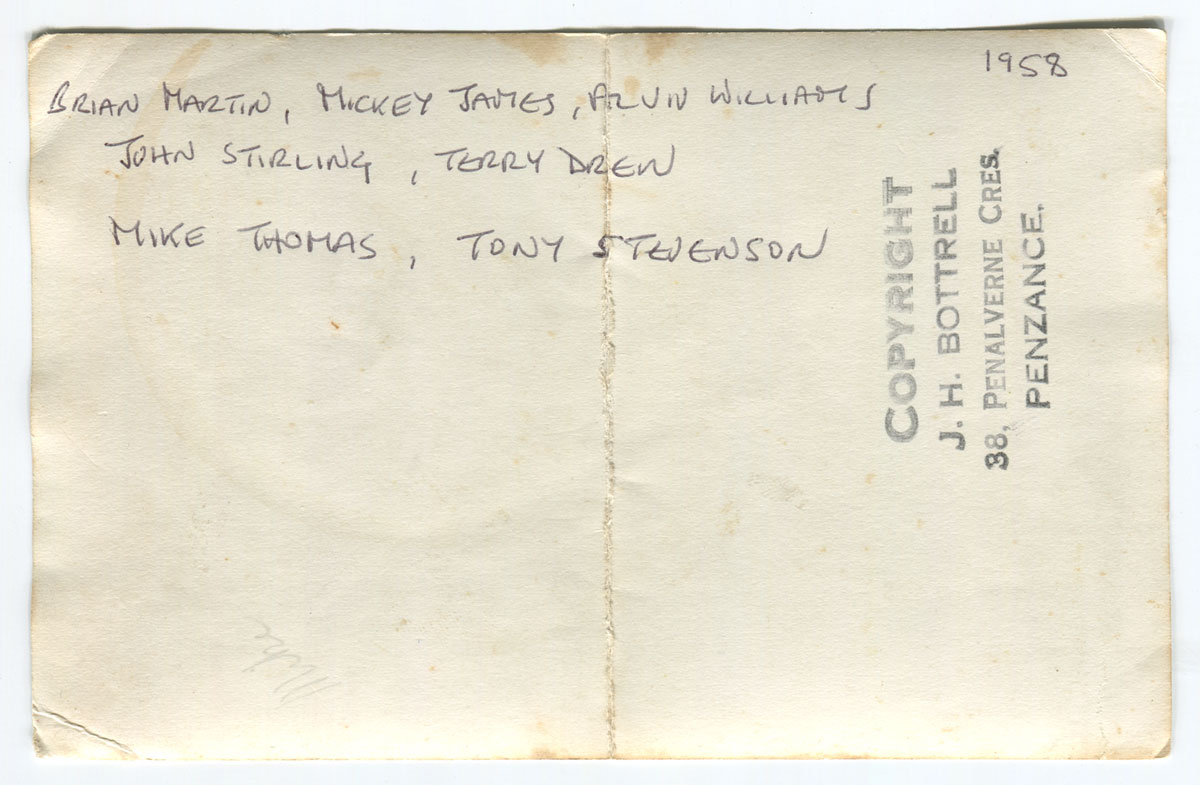 1958
BRIAN MARTIN, MICKEY JAMES, ALVIN WILLIAMS
JOHN STIRLING, TERRY DREW
MIKE THOMAS, TONY STEVENSON
COPYRIGHT
J. H. BOTTRELL
38, PENALVERNE CRES.
PENZANCE.
Mike